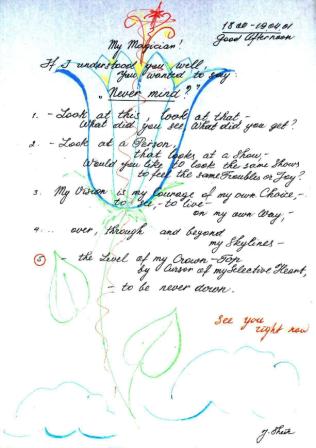 My Magician!
Good Afternoon
If I understood you well,
You wanted to say:
"Never mind?"
1. - Look at this, look at that -
What did you see, What did you get?
2. - Look at a Person,
that looks at a Show, -
Would you like to look the same Shows
to feel the same Troubles or Joy?
3. My Vision is my Courage of my own Choice, -
to see, - to live -
on my own Way, -
4... over, through and beyond
my Skylines -
5 - the Level of my Crown-Top
by Cursor of my Selective Heart,
- to be never down.
See you
right now